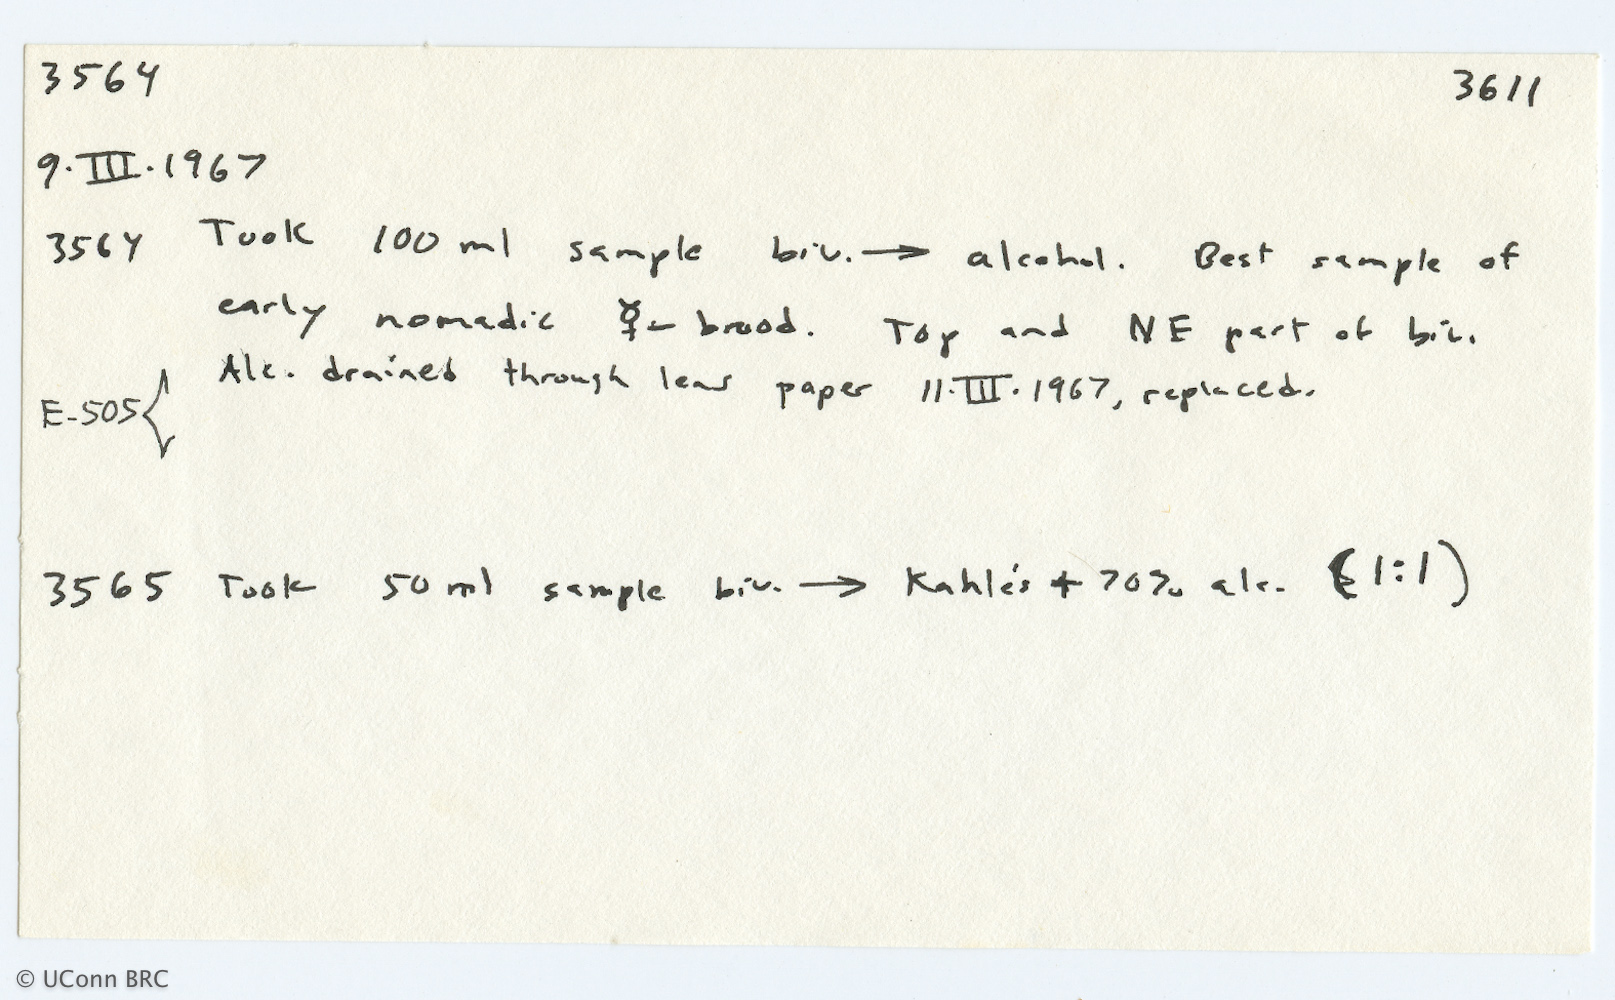 3564 3611
9.III.1967
3564 Took 100 ml sample biv. → alcohol. Best sample of
early nomadic ☿- brood. Top and NE part of biv.
Alc. drained through lens paper 11.III.1967, replaced.
E-505 {
3565 Took 50 ml sample biv. → Kahle's + 70% alc. (1:1)
© UConn BRC